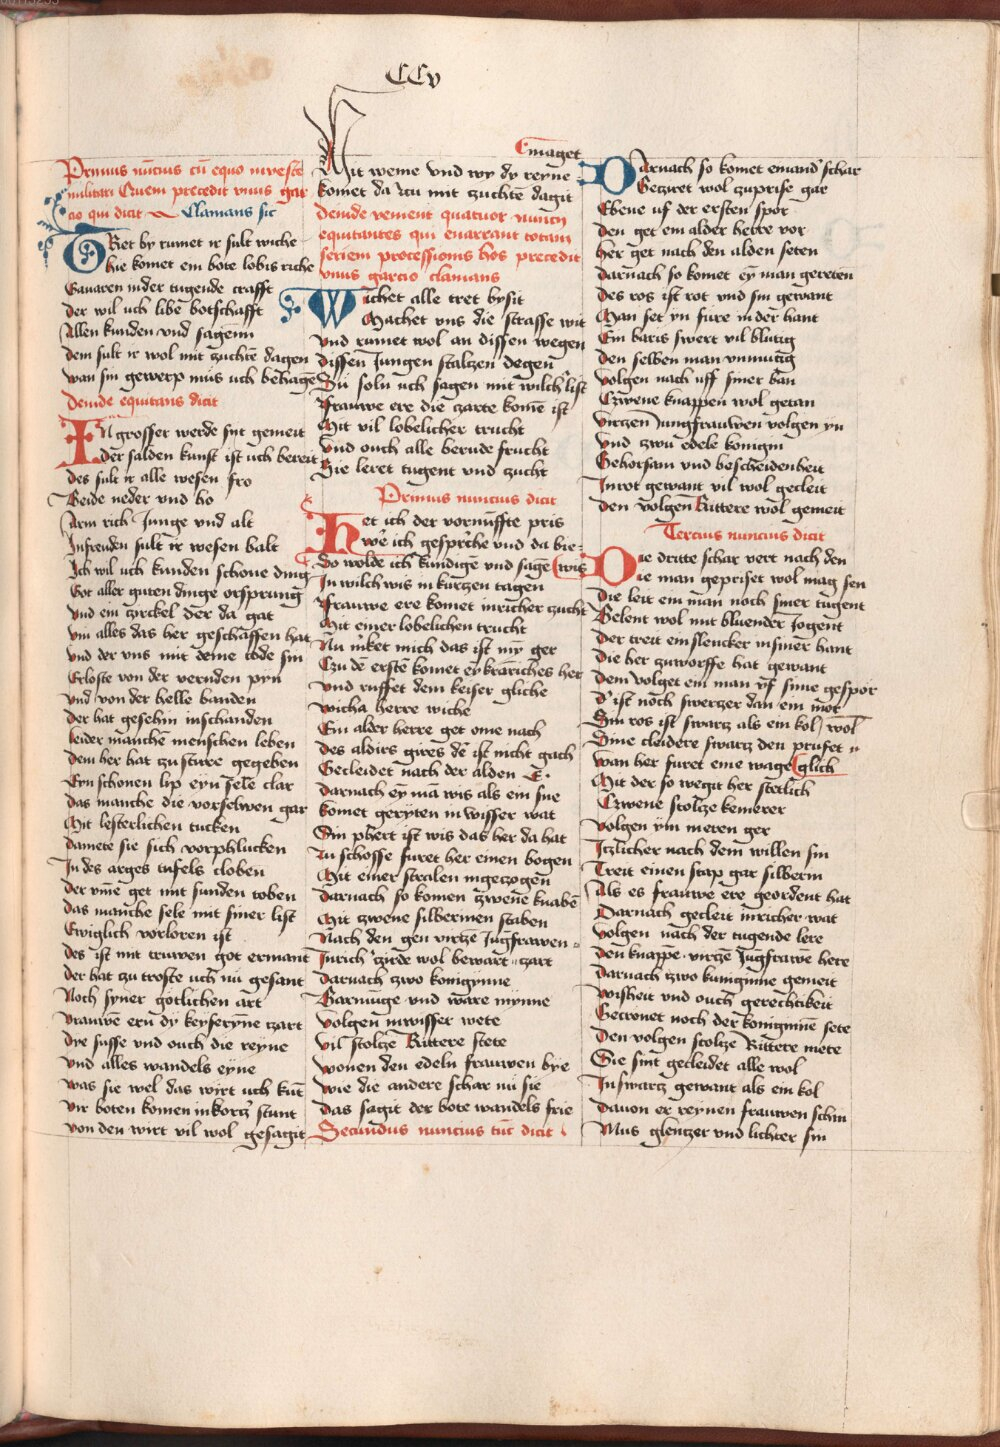 CCv
Primus nūcius cū equo in veste
militari Quem precedit vnus gar
cio qui dicit Clamans sic
TRet by rumet ir sult wiche
hie komet ein bote lobis riche
Gauaren in der tugende crafft
Der wil uch libē botschafft
Allen kunden vnd sagenn
dem sult ir wol mit zuchtē dagen
wan sin gewerp mus uch behagē
Deinde equitans dicit
IN grosser werde sint gemeit
der salden kunst ist uch bereit
des sult ir alle wesen fro
Beide neder vnd ho
Arm rich Junge vnd alt
In freuden sult ir wesen balt
Ich wil uch kunden schone ding
Got aller guten dinge orsprung
vnd ein zirckel der da gat
vm alles das her geschaffen hat
vnd der vns mit deme tode sin
Erloste von der vernden pyn
vnd von der helle banden
der hat gesehin in schanden
leider manchē menschen leben
dem her hat zu sture gegeben
Eyn schonen lip eyn sele clar
das manche die vorselwen gar
Mit lesterlichen tucken
damete sie sich vorphlucken
In des arges tufels cloben
der vm̄e get mit sunden toben
das manche sele mit siner list
Ewiglich vorloren ist
des ist mit truwen got ermant
der hat zu troste uch nu gesant
Noch syner gotlichen art
vrauwē ern dy keyserynē czart
dye susse vnd ouch die reyne
vnd alles wandels eyne
was sie wel das wirt uch kūt
vir boten komen in kortz stunt
von den wirt vil wol gesagit
Cmaget
Mit weme vnd wy dy reyne
komet da zcu mit zuchtē dagit
deinde venient quatuor nuncij
equitantes qui enarrant totam
seriem processionis hos precedit
vnus garcio clamans
WIchet alle tret bysit
Machet vns die strasse wit
vnd rumet wol an dissen wegen
dissen Jungen staltzen degen
Du soln uch sagen mit wilch' list
frauwe ere die zarte komē ist
Mit vil lobelicher trucht
vnd ouch alle bernde frucht
Sie leret tugent vnd zucht
Primus nuncius dicit
Het ich der vornuffte pris
we ich gesprche vnd da bie
So wolde ich kundigē vnd sagē wis
In wilch wis in kurtzen tagen
frauwe ere komet in richer zucht
Mit einer lobelichen trucht
Nu m'ket mich das ist my ger
Czu dē erstē komet ey krāriches her
vnd ruffet dem keiser gliche
wicha herre wiche
Ein alder herre get ome nach
des aldirs gires dē ist nicht gach
Gecleidet nach der alden E.
darnach ey mā wis als ein sne
komet geryten in wisser wat
Sin phert ist wis das her da hat
In schosse furet her einen bogen
Mit einer stralen ingezogen
Darnach so komen zwene knabē
Mit zwene silbernien staben
Nach den gen virtzē Jugfrawen
In rich zirde wol bewart zart
darnach zwo konigynne
Barmuge vnd ware mynne
volgen in wisser wete
vil stoltze Rittere stete
wonen den edeln frauwen bye
wie die andere schar nu sie
das sagit der bote wandels frie
Secundus nuncius tūc dicit
DArnach so komet einand' schar
Geziret wol zuprise gar
Ebene uf der ersten spor
den get ein alder herre vor
her get nach den alden seten
darnach so komet ey man gereten
des ros ist rot vnd sin gewant
Man set yn fure in der hant
Ein baris swert vil blutig
den selben man vnmutig
volgen nach uff siner ban
Czwene knappen wol getan
virczen Jungfrauwen volgen yn
vnd zwu edele konigin
Gehorsam vnd bescheidenheit
In rot gewant vil wol gecleit
den volgen Rittere wol gemeit
Tercius nuncius dicit
DIe dritte schar vert nach den
die man gepriset wol mag sen
die leit ein man noch siner tugent
Belent wol mit bluender Jogent
der treit ein slencker in siner hant
die her zuworffe hat gewant
dem volget ein man vf sine gespor
d' ist noch swerzer dan ein mor
Sin ros ist swartz als ein kol wol
Sine cleidere swartz den prufet
wan her furet eine wage glich
Mit der so wegit her stetlich
Czwene stoltze kemerer
volgen ym meten ger
Itzlicher nach dem willen sin
Treit einen stap gar silberin
Als es frauwe ere geordent hat
Darnach gecleit in richer wat
volgen nach der tugende lere
den knappē virtzē Jūgfrawe here
darnach zwo kuniginne gemeit
wisheit vnd ouch gerechtikeit
Gecronet noch der koniginnē sete
Den volgen stoltze Rittere mete
Sie sint gecleidet alle wol
In swartz gewant als ein kol
dauon er reynen frauwen schin
Mus glentzer vnd lichter sin